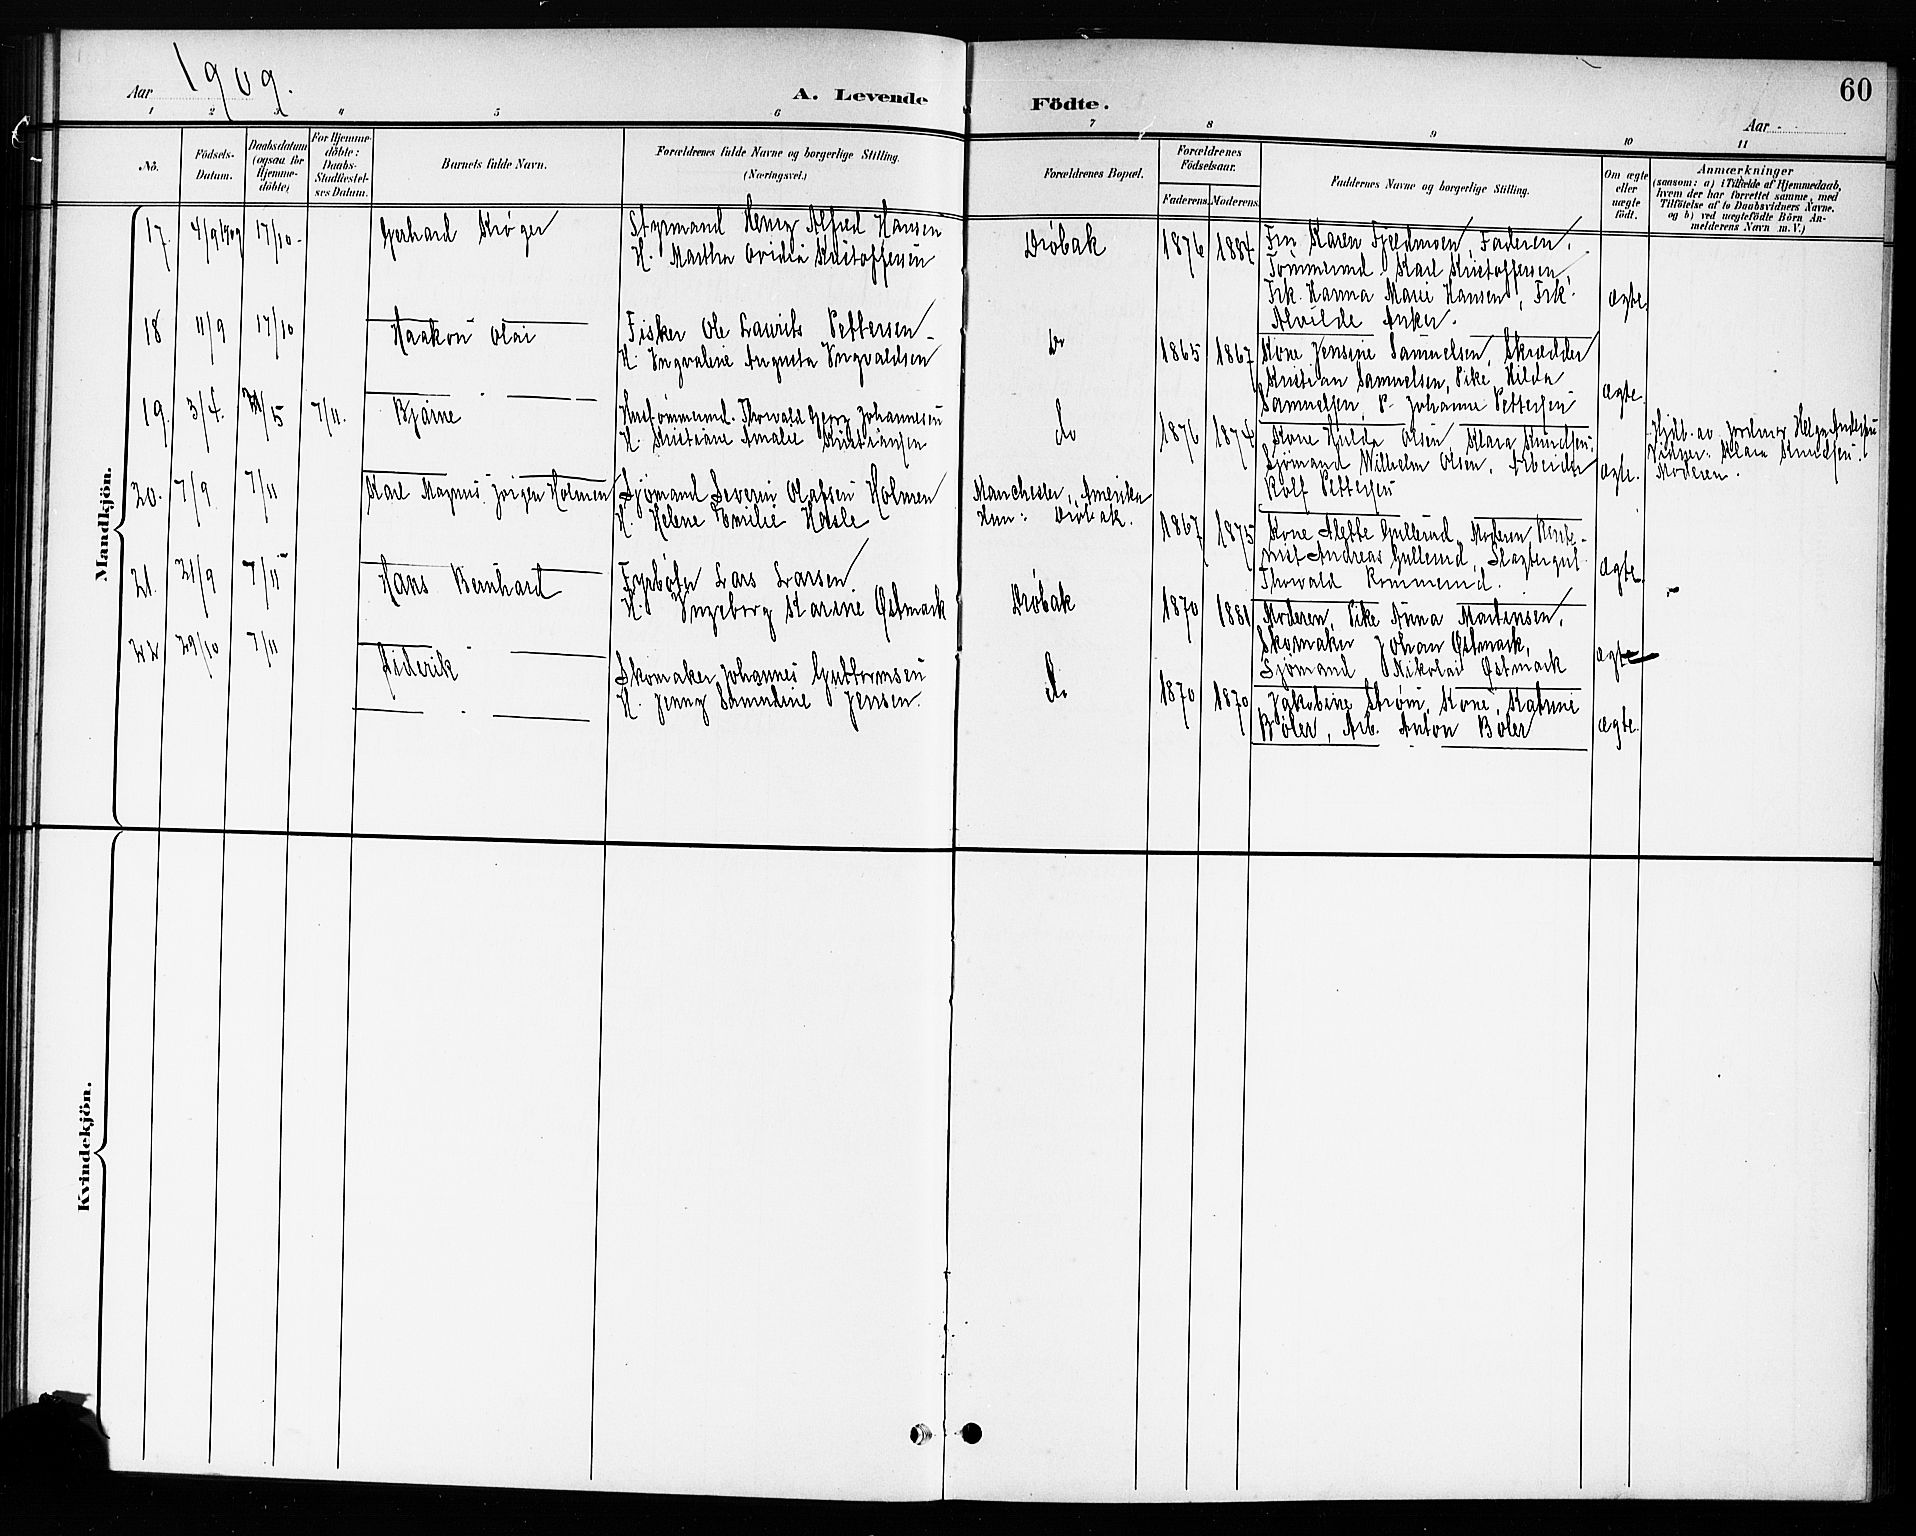 Aar 1909.
A. Levende Födte.
60
Aar
1 2 3 4 5 6 7 8 9 10 11
No.
Födsels-Datum.
Daabsdatum (ogsaa for Hjemme-döbte)
For Hjemme-döbte: Daabs-Stadfæstel-ses Datum.
Barnets fulde Navn.
Forældrenes fulde Navne og borgerlige Stilling. (Næringsvei.)
Forældrenes Bopæl.
Forældrenes Födselsaar.
Faderens. Moderens.
Faddernes Navne og borgerlige Stilling.
Om ægte eller uægte födt.
Anmærkninger
(saasom: a) i Tilfælde af Hjemmedaab,
hvem der har forrettet samme, med
Tilföielse af to Daabsvidners Navne.
og b) ved uægtefödte Börn An-
melderens Navn m. V.)
Mandkjön.
17. 4/9 1909 17/10 - Gerhard Krøger
Styrmand Henry Alfred Hansen
H. Martha Ovidia Kristoffersen
Drøbak 1876 1884
Fru Karen Fjeldmoen, Faderen,
Tømmermd Karl Kristoffersen,
Frk. Hanna Marie Hansen, Frk.
Alvilde Anker.
ægte.
18 11/9 17/10 Haakon Olai
Fisker Ole Laurits Pettersen
H. Ingvaline Augusta Ingvaldsen
Do 1865 1867
Kone Jensine Samuelsen, Skrædder
Kristian Samuelsen, Pike Hilda
Samuelsen, P. Johanne Pettersen
ægte.
19. 3/4. /5 7/11. Bjarne
Hustømmermd. Thorvald Georg Johannesen
H. Kristiane Amalie Kristiansen
do 1876 1874
Kone Hulda Olsen, Klara Knudsen,
Sjømand Wilhelm Olsen, Arbeider
Rolf Pettersen
ægte.
Hjdb. av Jordmor Helga Andersen
Vidner: Klara Knudsen,
Moderen.
20. 7/9. 7/11 Karl Magnus Jørgen Holmen
Sjømand Severin Olafsen Holmen
H. Helene Emilie Hasle
Manchester, Amerika
Hun: Drøbak.
1867 1875
Kone Alette Gullerud, Moderen,
Andreas Gullerud, Slagtergut
Thorvald Rommerud.
ægte.
21. 21/9 7/11 Hans Bernhard
Fyrbøter Lars Larsen
H. Ingeborg Karine Østmark
Drøbak 1870 1881
Moderen, Pike Anna Martinsen,
Skomaker Johan Østmark,
Sjømand Nikolai Østmark
ægte
22 29/10 7/11 Fridrik
Skomaker Johannes Guttormsen
H. Jenny Samuline Jensen.
do 1870 1870
Jakobine Strøm, Kone, Katrine
Bøler, Arb. Anton Bøler
ægte.
Kvindekjön.